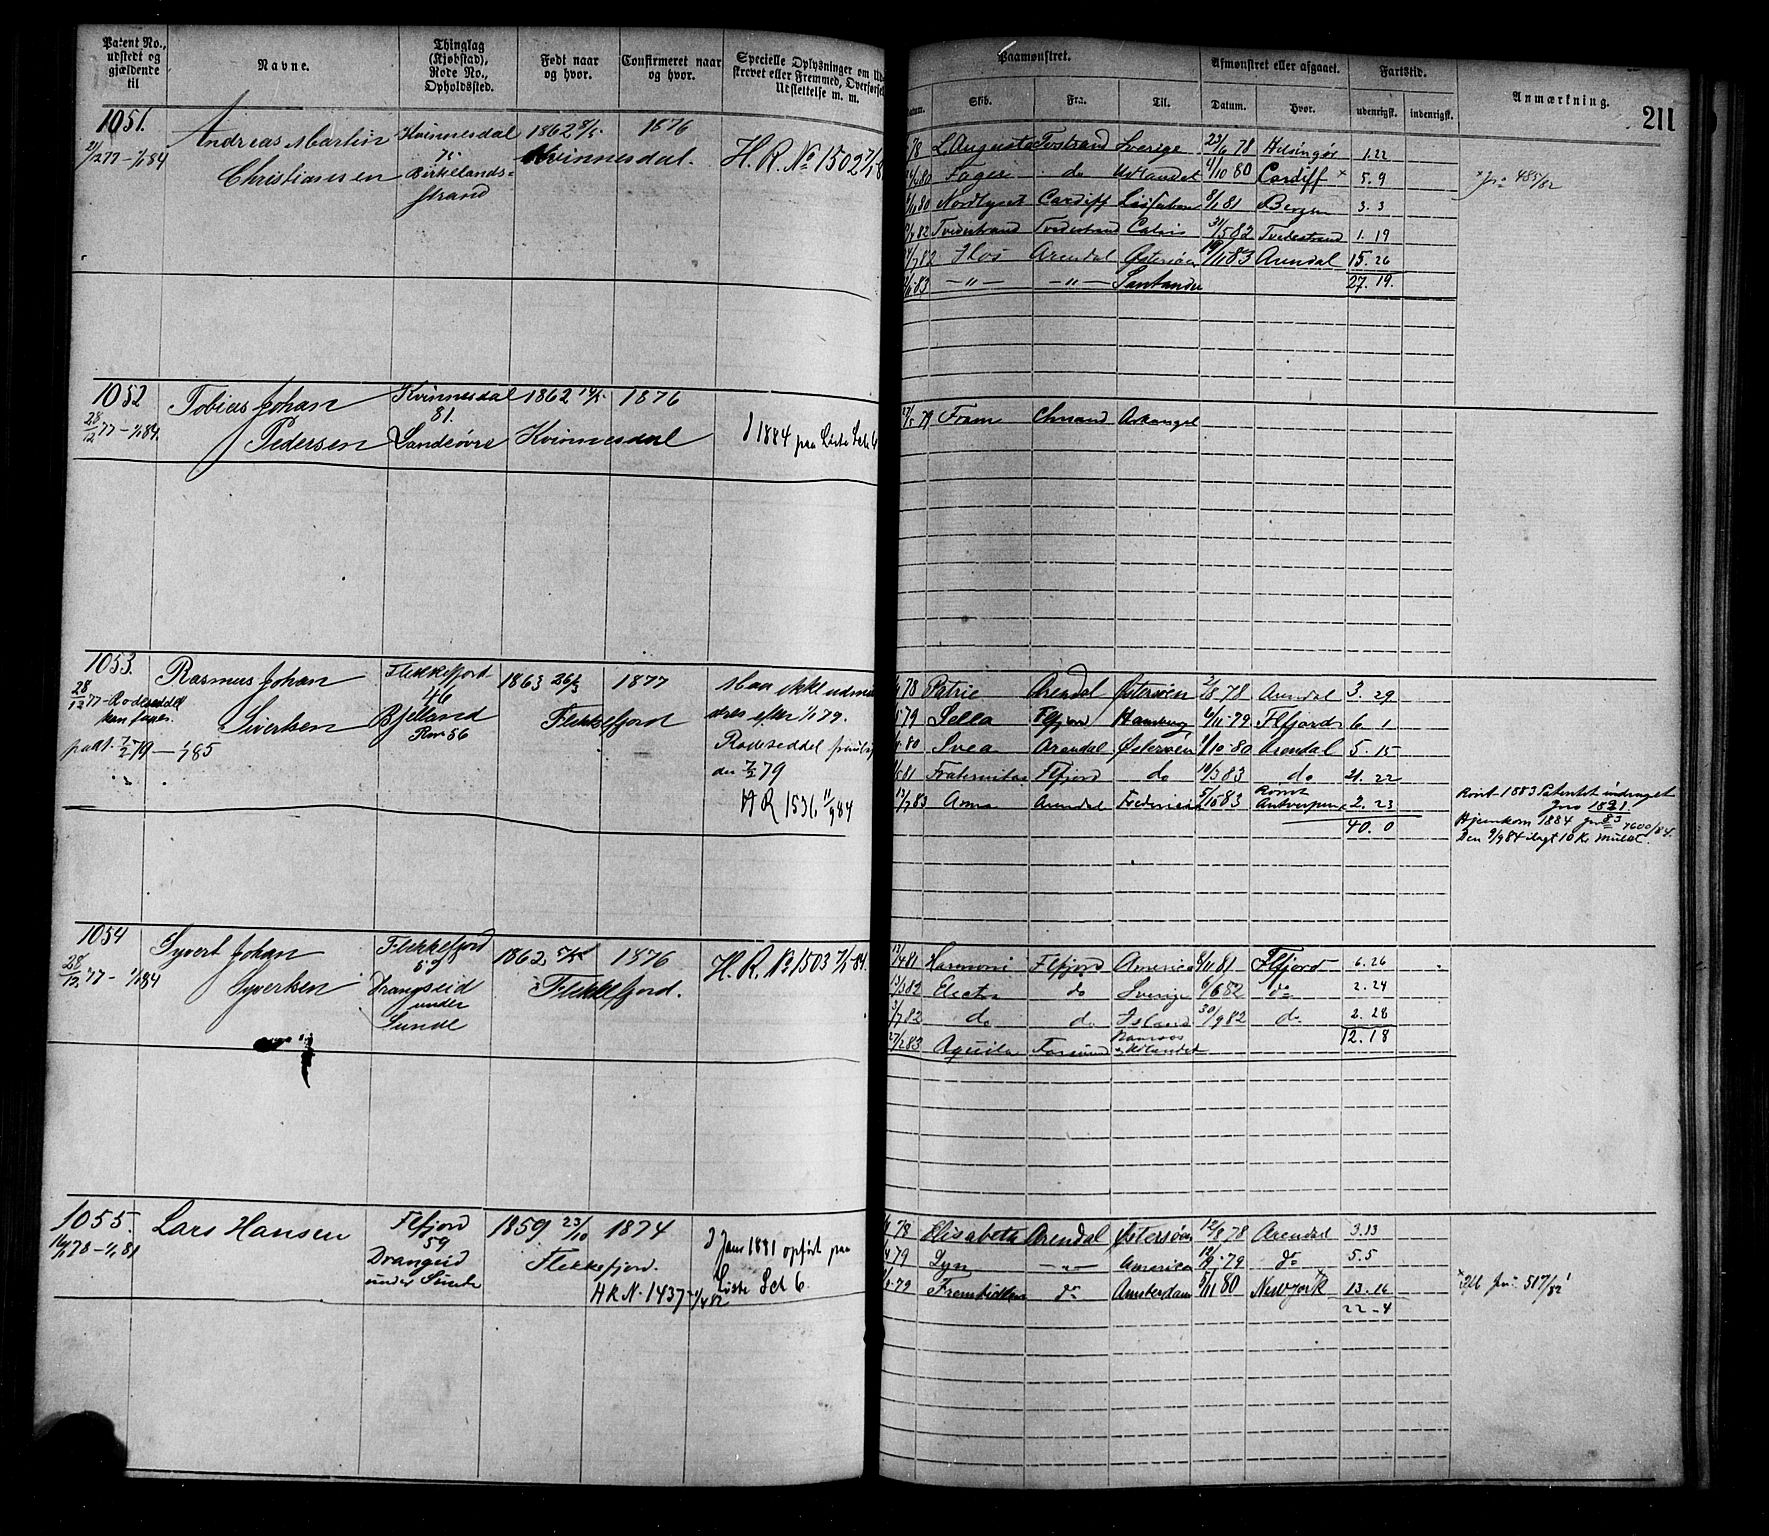 Patent No., udstedt og gjældende til
Navne.
Thinglag (Kjøbstad), Rode No., Opholdssted.
Født naar og hvor.
Confirmeret naar og hvor.
Specielle Oplysninger om
strevet eller Fremmed, Overførsel
Udslettelse m. m.
Paamønstret.
Afmønstret eller afgaaet.
Fartstid.
Skib.
Fra.
Til.
Datum.
Hvor.
udenrigsk.
indenrigsk.
Anmærkning.
211
1051.
21/12 77 - 1/1 84
Andreas Martin
Christiansen
Kvinnesdal
75
Birkelands-
strand
1862 8/5
1876
Kvinnesdal.
H. R. No 1502
78 L. Augusta Tvestrand Sverige 23/6 78 Helsingør 1. 22
80 Fager do Udlandet 4/10 80 Cardiff × 5. 9
× Jr: 485/82
80 Nordlyset Cardiff Lissabon 8/1 81 Bergen 3. 3
82 Tvedestrand Tvedestrand Calais 31/5 82 Tvedestrand 1. 19
82 Arendal Østersøen 83 Arendal 15. 26
83 — " — — " — Santander 27. 19.
1052
28/12 77 - 1/1 84.
Tobias Johan
Pedersen
Kvinnesdal
81.
Sandeøvre
1862
1876
Kvinnesdal
I 1884 paa Liste Sch 6
79 Fram Chrsand Arkangel
1053.
28/12 77 - Rodeseddel
kan faaes.
pat. 7/2 79 — 1/1 85
Rasmus Johan
Siverksen
Flekkefjord
46
Bjelland
Rov 56
1863 26/3
1877
Flekkefjord
Maa ikke udmøn-
stres efter 1/1 79.
Rodeseddel
den 7/2 79
H R 1531 11/9 84
78 Patrie Arendal Østersøen 2/8 78 Arendal 3. 29
79 Sella Flfjord Hamburg 6/11 - 79 Flfjord 6 1
80 Svea Arendal Østersøen 1/10 - 80 Arendal 5. 15
81 Fraternitas Flfjord do 10/3 83 do 21. 22
83 Arendal Fredericia 5/10 83 Rømt
Antwerpen × 2. 23
40. 0
Rømt 1883 Patentet inddraget
Jno 1821/83
Hjemkom 1884 Jno 4600/84.
Den 9/9 84 ilagt 10 Kr Mulkt.
1054
28/12 77 - 1/1 84
Syvert Johan
Syvertsen
Flekkefjord
59
Drangseid
under
Sunde
1862
1876
Flekkefjord.
H. R. No 1503 7/1 84.
81 Harmoni Flfjord America 8/11 81 Flfjord 6. 26
82 Electra do Sverige 6/6 82 do 2. 24
82 do do Island 30/9 82 do 2. 28
27/2 83 Aquila Farsund
Udlandet 12. 18
1055.
78 - 1/1 81
Lars Hansen
Flfjord
59
Drangeid
under Sunde
1859 23/10
1874
Flekkefjord.
H R N. 1437
I Janr 1881 opført paa
Liste Sch 6.
78 Elisabeta Arendal Østersøen 12/8 78 Arendal 3. 13
79 Lyn — " — America 79 do 5. 5
79 Fremtiden do Amsterdam 5/11 80 Newyork 13. 16
22 - 4
Jno 517/82